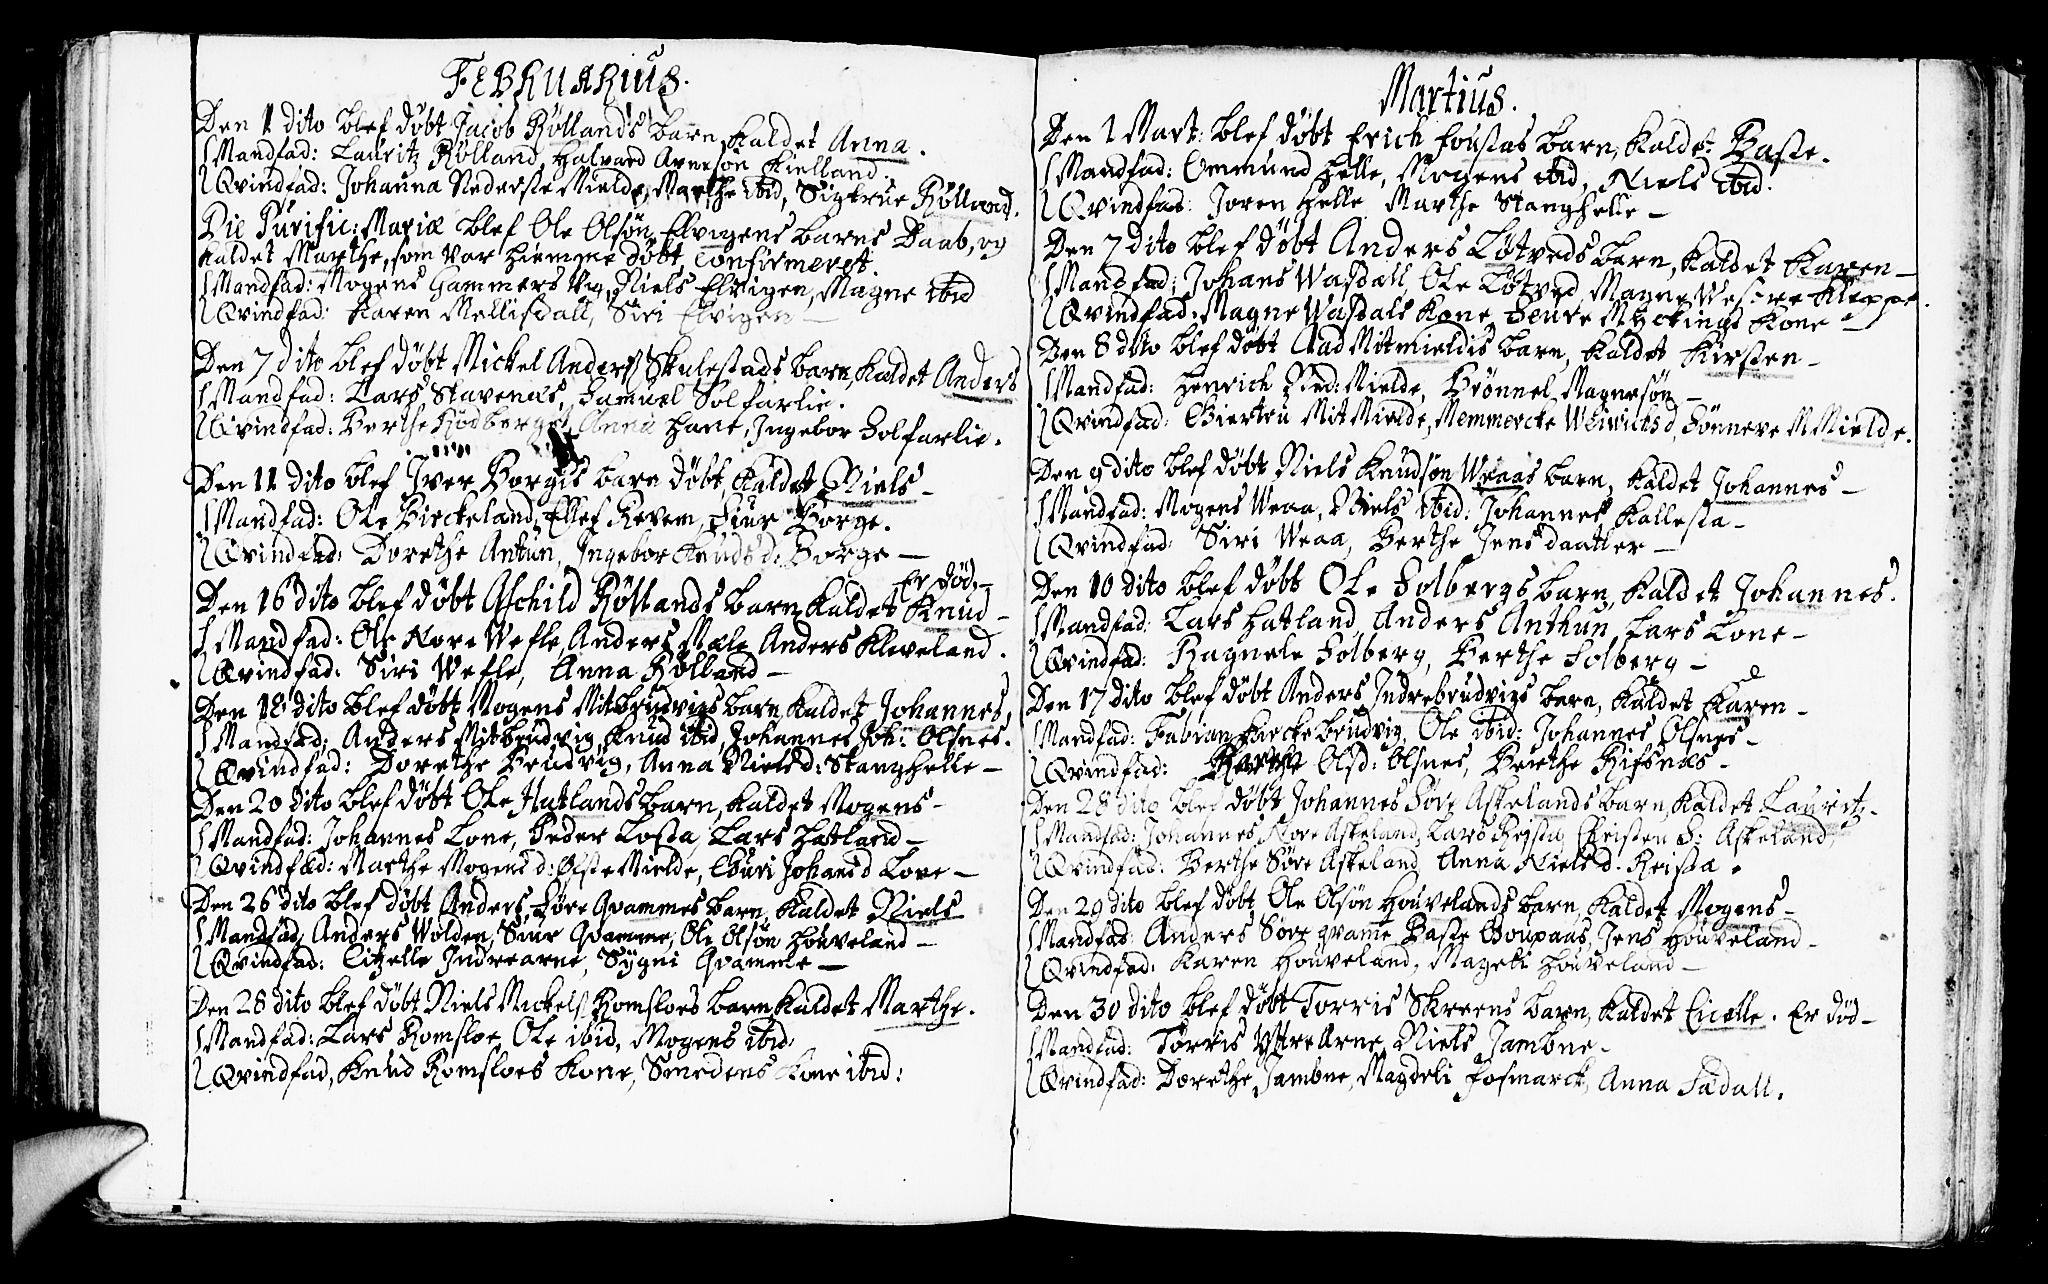 FEBRUARIUS.
Den 1 dito blef döbt Jacob Röllands barn, kaldet Anna.
Mandfad: Lauritz Rölland, Halvard Avnesön Kielland.
Qvindfad: Johanna Nederste Mielde, Marthe ibid, Sigtrue Rölland.
Die Purific: Mariæ blef Ole Olsön Elvigens barns Daab, og
kaldet Marthe, som var hiemme döbt, Confirmeret.
Mandfad: Mogens Hammersvig, Niels Elvigen, Magne ibid
Qvindfad: Karen Mellisdall, Siri Elvigen —
Den 7 dito blef döbt Mickel Anders Skulestads barn, kaldet Anders
Mandfad: Lars Stavenes, Samuel Solfarlie.
Qvindfad: Berthe Rödberget, Anna Hane, Ingebor Solfarlie.
Den 11 dito blef Iver Borges barn döbt, kaldet Niels —
Mandfad: Ole Birckeland, Ellef Revem, Siur Borge.
Qvindfad: Dorethe Antun, Ingebor Knudsd: Borge —
Er död. —
Den 16 dito blef döbt Aschild Röllands barn kaldet Knud —
Mandfad: Ole Nore Wefle, Anders Mæle, Anders Kleveland.
Qvindfad: Siri Wefle, Anna Rölland —
Den 18 dito blef döbt Mogens Mitbrudvigs barn kaldet Johannes,
Mandfad: Anders Mitbrudvig, Knud ibid, Johannes Joh: Olsnes.
Qvindfad: Dorethe Brudvig, Anna Nielsd: Stanghelle —
Den 20 dito blef döbt Ole Hatlands barn, kaldet Mogens —
Mandfad: Johannes Lone, Peder Losta, Lars Hatland —
Qvindfad: Marthe Mogensd: Öfste Mielde, Guri Johansd Lone —
Den 26 dito blef döbt Anders Söre Qvammes barn, kaldet Niels
Mandfad, Anders Wolden, Siur Qvamme, Ole Olsön Houveland —
Qvindfad: Citzelle Indrearne, Sÿgni Qvamme —
Den 28 dito blef döbt Niels Mickels Romsloes barn kaldet Marthe.
Mandfad: Lars Romsloe, Ole ibid, Mogens ibid:
Qvindfad, Knud Romsloes Kone, Smedens Kone ibid:
Martius.
Den 1 Mart: blef döbt Erich Foustas barn, kaldet Baste.
Mandfad: Ommund Helle, Mogens ibid, Niels ibid.
Qvindfad: Joren Helle, Marthe Stanghelle —
Den 7 dito blef döbt Anders Lötveds barn, kaldet Karen —
Mandfad: Johans Wasdall, Ole Lötved, Magne Westre Kleppe.
Qvindfad: Magne Wasdals Kone, Siure Mÿckings Kone —
Den 8 dito blef döbt Aad Mitmieldis barn, kaldet Kirsten —
Mandfad: Henrich Ned: Mielde, Brönnel Magnesön —
Qvindfad: Giertru Mit Mielde, Memmercke Weirichsd, Sönneve M Mielde.
Den 9 dito blef döbt Niels Knudsön Weaas barn, kaldet Johannes —
Mandfad: Mogens Weaa, Niels ibid: Johannes Kallesta —
Qvindfad: Siri Weaa, Berthe Jens daatter —
Den 10 dito blef döbt Ole Solbergs barn, kaldet Johannes.
Mandfad: Lars Hatland, Anders Anthun, Lars Lone —
Qvindfad: Ragnele Solberg, Berthe Solberg —
Den 17 dito blef döbt Anders Indrebrudvigs barn, kaldet Karen —
Mandfad: Fabian Birckebrudvig, Ole ibid: Johannes Olsnes —
Qvindfad: Marthe Olsd: Olsnes, Berthe Rifsnæs —
Den 28 dito blef döbt Johannes Söre Askelands barn, kaldet Lauritz —
Mandfad: Johannes Nore Askeland, Lars Reista, Christen S: Askeland
Qvindfad: Berthe Söre Askeland, Anna Nielsd. Reista.
Den 29 dito blef döbt Ole Olsön Houvelands barn, kaldet Mogens —
Mandfad: Anders Söre qvamme, Baste Goupaas, Jens Houveland —
Qvindfad: Karen Houveland, Mageli Houveland —
Den 30 dito blef döbt Torris Skreens barn, kaldet Cicelle. Er död —
Mandfad: Torris Ÿtre Arne, Niels Jambne —
Qvindfad: Dorethe Jambne, Magdeli Fosmarck, Anna Sædall.